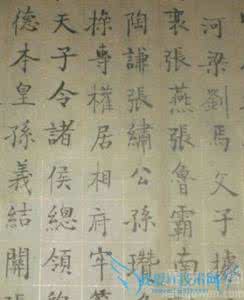 河梁劉焉父子據
袁張燕張魯霸南
陶謙張繡公孫瓚
操專權居相府牢
天子令諸侯總領
德本皇孫義結關